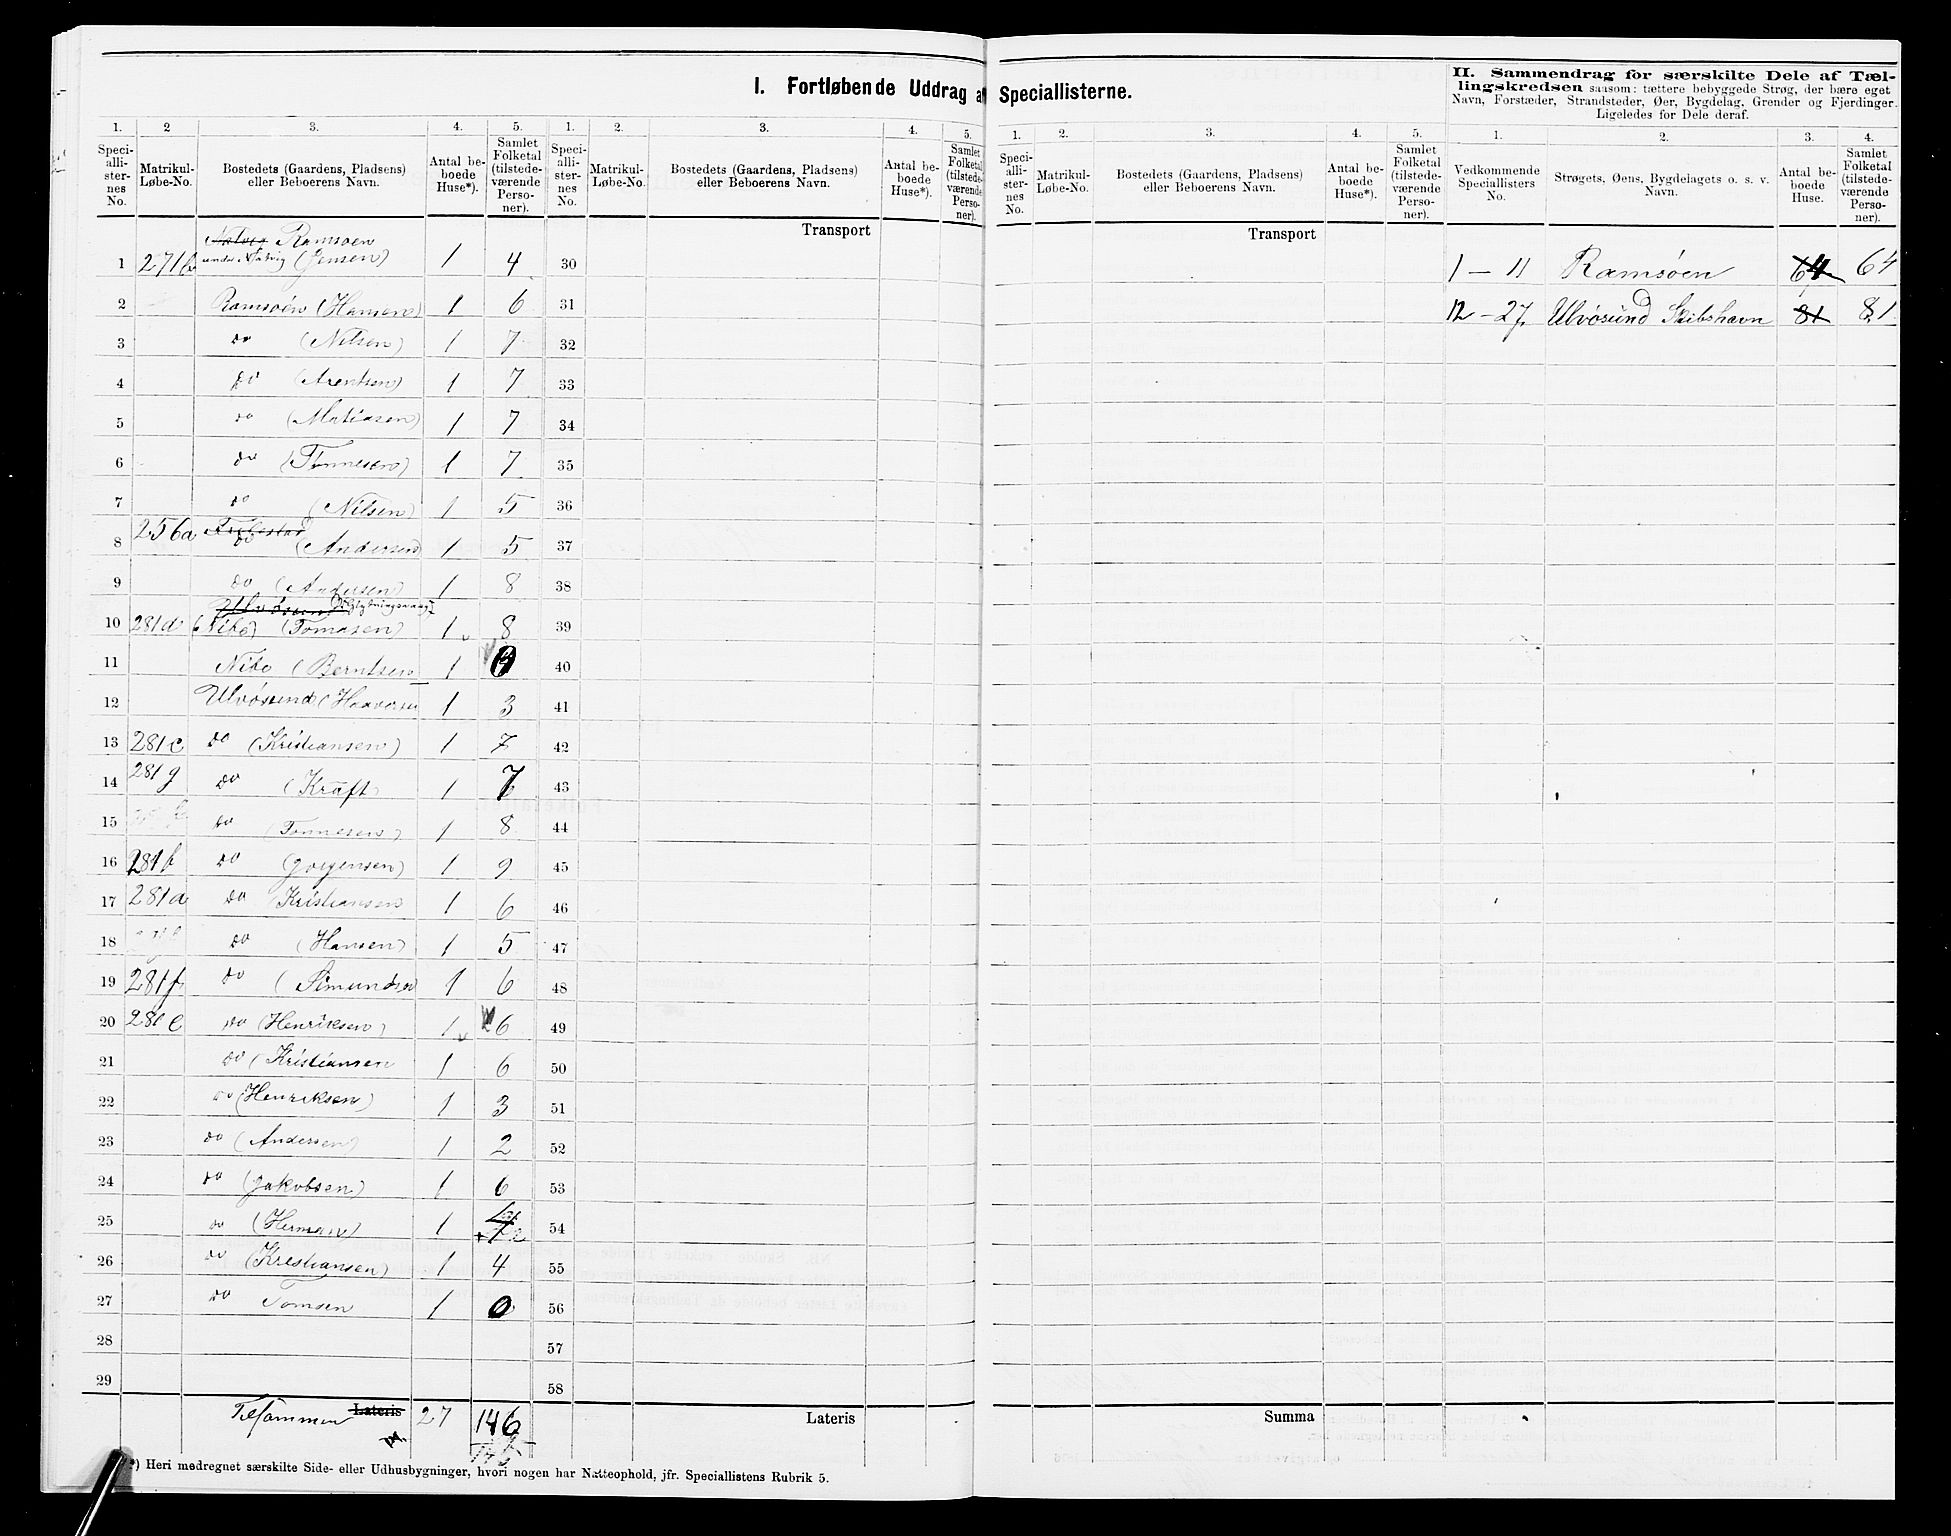 I. Fortløbende Uddrag af Speciallisterne.
II. Sammendrag for særskilte Dele af Tæl-
lingskredsen saasom: tættere bebyggede Strøg, der bære eget
Navn, Forstæder, Strandsteder, Øer, Bygdelag, Grender og Fjerdinger.
Ligeledes for Dele deraf.
1. 2 3. 4. 5. 1. 2. 3. 4. 5. 1. 2. 3. 4. 5. 1. 2. 3. 4.
Speci-
alli-
ster-
nes
No.
Matrikul-
Løbe-No.
Bostedets (Gaardens, Pladsens)
eller Beboerens Navn.
Antal be-
boede
Huse*).
Samlet
Folketal
(tilstede-
værende
Perso-
ner).
Speci-
alli-
ster-
nes
No.
Matrikul-
Løbe-No.
Bostedets (Gaardens, Pladsens)
eller Beboerens Navn.
Antal be-
boede
Huse*).
Samlet
Folketal
(tilstede-
værende
Perso-
ner).
Speci-
alli-
ster-
nes
No.
Matrikul-
Løbe-No.
Bostedets (Gaardens, Pladsens)
eller Beboerens Navn.
Antal be-
boede
Huse*).
Samlet
Folketal
(tilstede-
værende
Perso-
ner).
Vedkommende
Speciallisters
No.
Strøgets, Øens, Bygdelagets o. s. v.
Navn.
Antal be-
boede
Huse.
Samlet
Folketal
(tilstede-
værende
Perso-
ner).
Transport Transport
Ramsøen
1 271b under Natvig (Jensen) 1 4 30 1 – 11 Ramsøen 64 64
2 Ramsøen (Hansen) 1 6 31 12 – 27 Ulvøsund Skibshavn 81 81
3 do (Nilsen) 1 7 32
4 do (Arentsen) 1 7 33
5 do (Matiasen) 1 7 34
6 do (Tønnesen) 1 7 35
7 do (Nilsen) 1 5 36
8 256a do (Andersen) 1 5 37
9 do (Andersen) 1 8 38
10 281d (Nibo) (Tomasen) 1 8 39
11 Nibo (Berntsen 1 40
12 Ulvøsund (Haaversen 1 3 41
13 281c do (Kristiansen) 1 7 42
14 281g do (Kraft) 1 7 43
15 do (Tønnesen) 1 8 44
16 281b do (Jørgensen) 1 9 45
17 281a do Kristiansen 1 6 46
18 do (Hansen) 1 5 47
19 281f do (Simundsen 1 6 48
20 281e do (Henriksen) 1 6 49
21 do (Kristiansen 1 6 50
22 do (Henriksen) 1 3 51
23 do (Andersen) 1 2 52
24 do (Jakobsen) 1 6 53
25 do (Herman) 1 54
26 do (Krestiansen) 1 4 55
27 do Tomsen 1 0 56
28 57
29 58
Tilsammen Lateris 27 146 Lateris Summa
145
*) Heri medregnet særskilte Side- eller Udhusbygninger, hvori nogen har Natteophold, jfr. Speciallistens Rubrik 5.